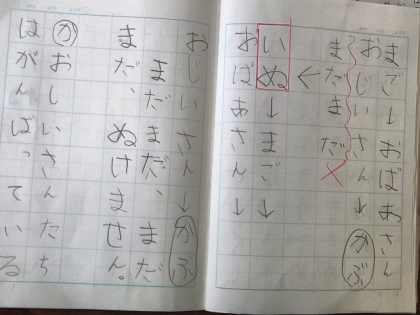 まご↓おばあさん
おじいさん↓かぶ
まだまだ×
←
いぬ↓まご↓
おばあさん↓
おじいさん↓かぶ
まだまだ、まだ
まだ、ぬけません。
かおしいさんたち
はがんばっている